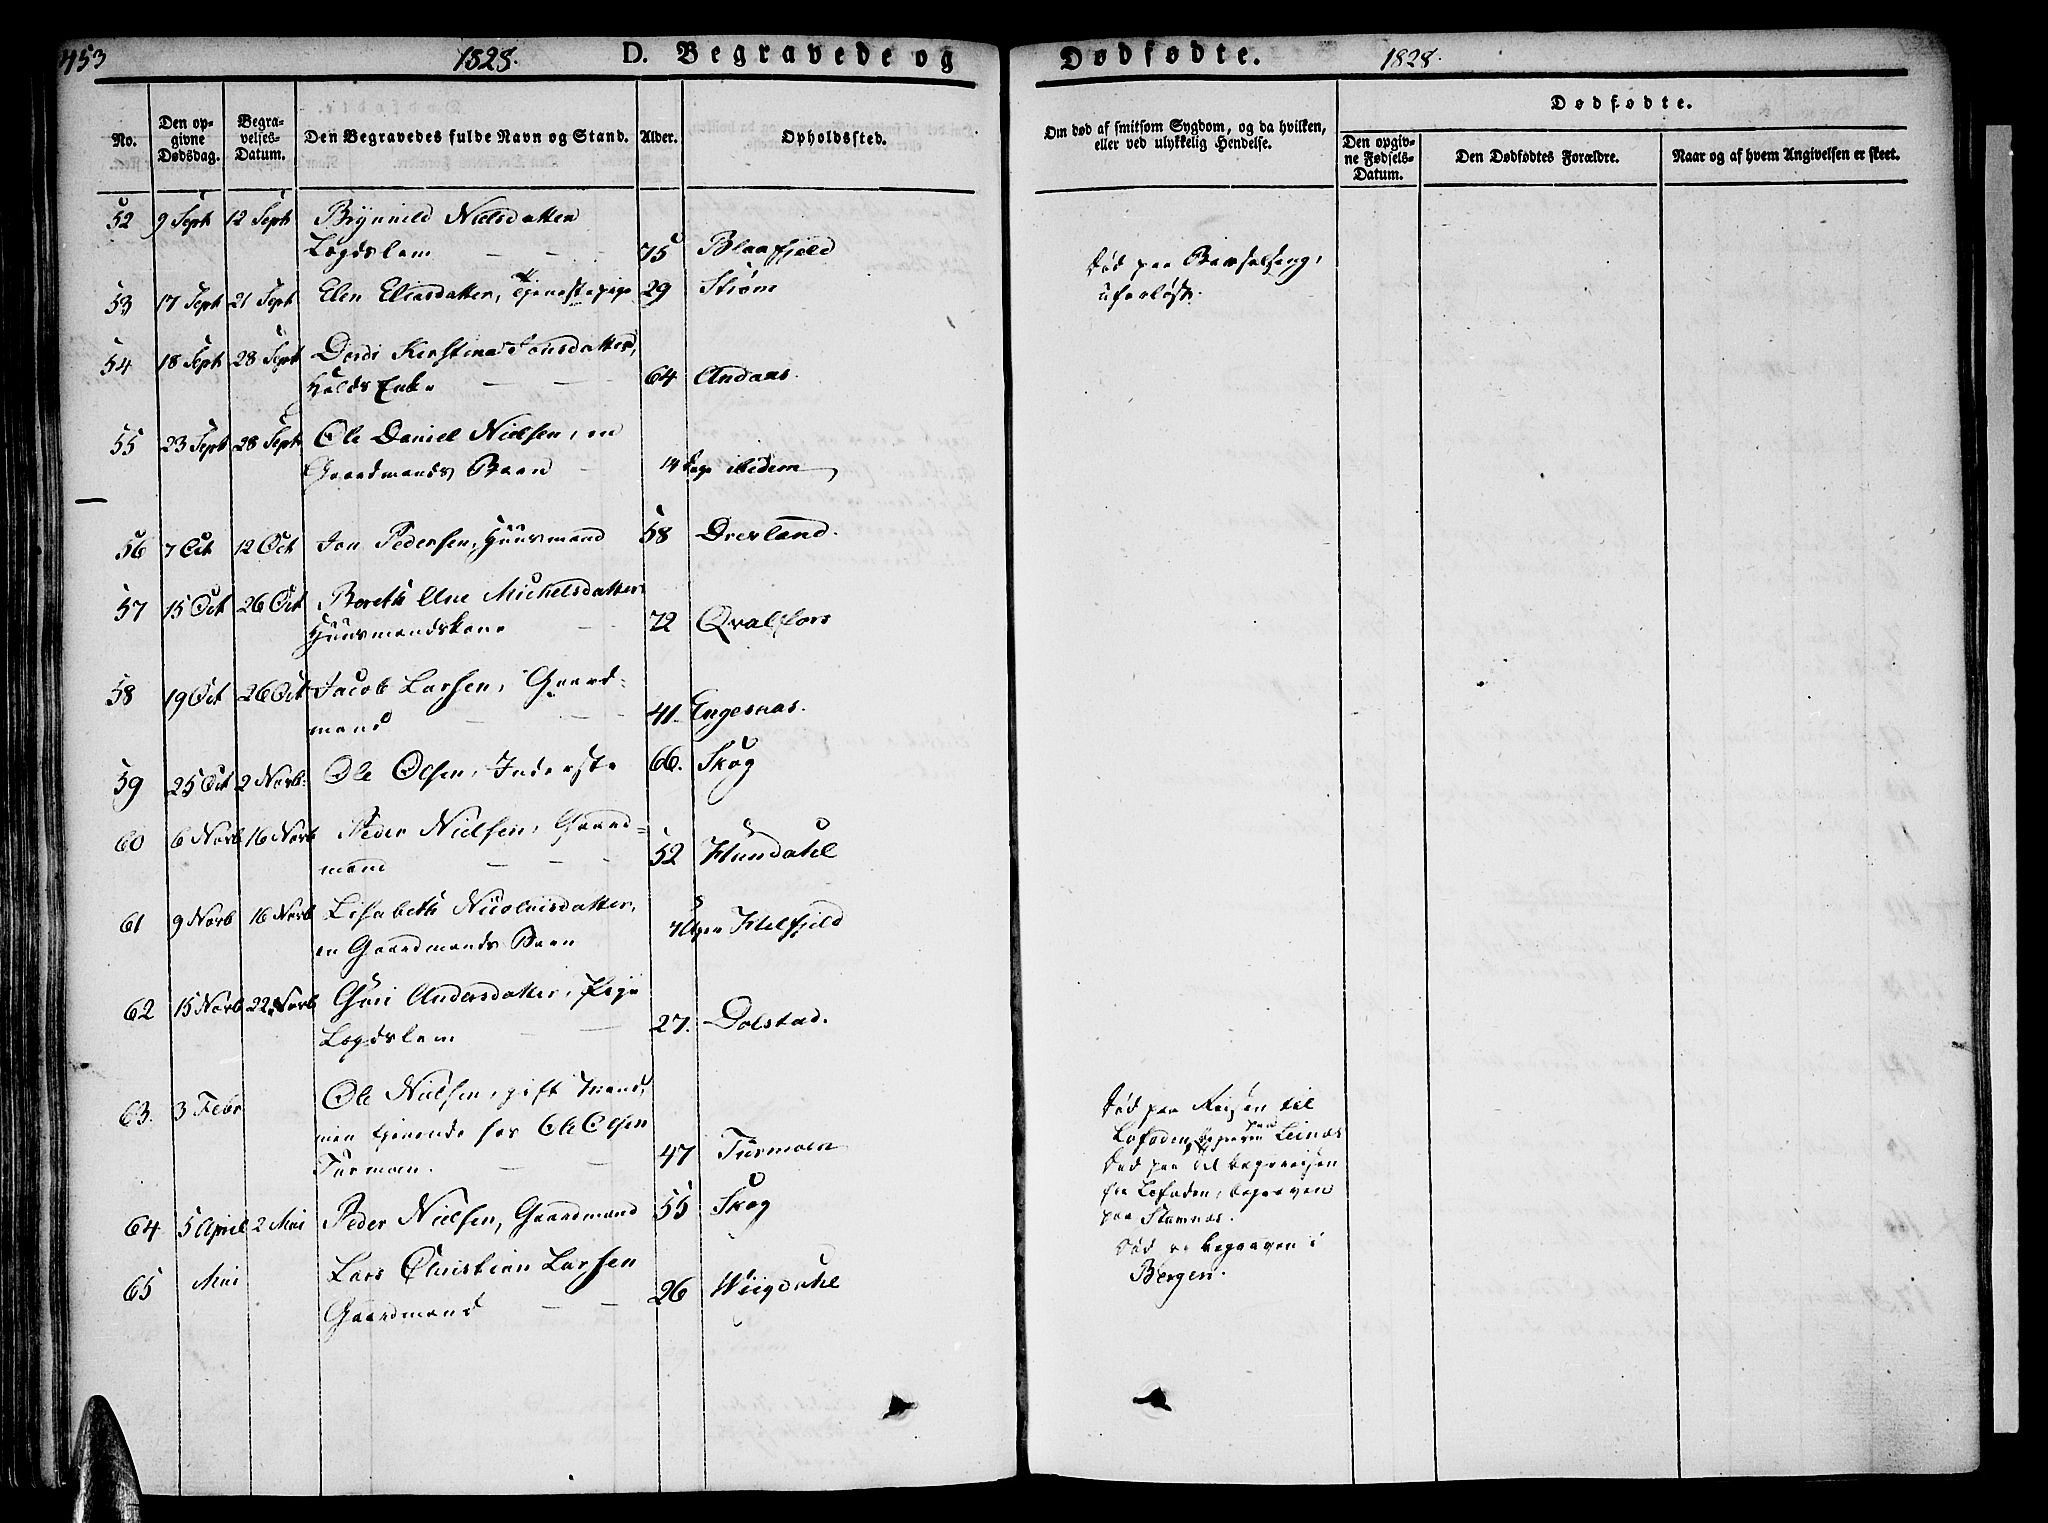 453
1828.
D. Begravede og
Dødfødte.
1828.
No.
Den opgivne Dødsdag.
Begravelses-Datum.
Den Begravedes fulde Navn og Stand.
Alder.
Opholdssted.
Om død af smitsom Sygdom, og da hvilken,
eller ved ulykkelig Hendelse.
Dødfødte.
Den opgivne Fødsels-Datum.
Den Dødfødtes Forældre.
Naar og af hvem Angivelsen er skeet.
52 9 Sept 12 Sept Brynnild Nielsdatter
Lægdslem 75 Blaafjeld
53 17 Sept 21 Sept Elen Eliasdatter, Tjenestepige 29 Strøm
Død paa Barselseng,
uforløst.
54 18 Sept 28 Sept Dordi Kirstina Jonsdatter,
Enke 64 Andaas.
55 23 Sept 28 Sept Ole Daniel Nielsen, en
Gaardmands Barn 14 Dage ibidem
56 7 Oct 12 Oct Jon Pedersen, Huusmand 58 Drevland.
57 15 Oct 26 Oct Bereth Ane Michelsdatter
Huusmandskone 72 Qvalfors
58 19 Oct 26 Oct Jacob Larsen, Gaard-
mand 41. Engesnæs.
59 25 Oct 2 Novb. Ole Olsen, Inderste 66. Skog
60 6 Novb 16 Novb Peder Nielsen, Gaard-
mand 52 Hundahl
61 9 Novb 16 Novb Lisabeth Nicolaisdatter,
en Gaardmands Barn Helfjeld
62 15 Novb 22 Novb Guri Andersdatter, Pige
Lægdslem 27. Dolstad.
63. 3 Febr Ole Nielsen, gift Mand,
men tjenende hos Ole Olsen
Turmoen. 47 Turmoen
Død paa Reisen til
Lofoden, begraven paa Leines
64 5 April 2 Mai Peder Nielsen, Gaardmand 55 Skog
Død paa
fra Lofoden, begraven
paa Stamnæs.
65 Mai Lars Christian Larsen
Gaardmand 26 Wiigdahl
Død og begraven i
Bergen.